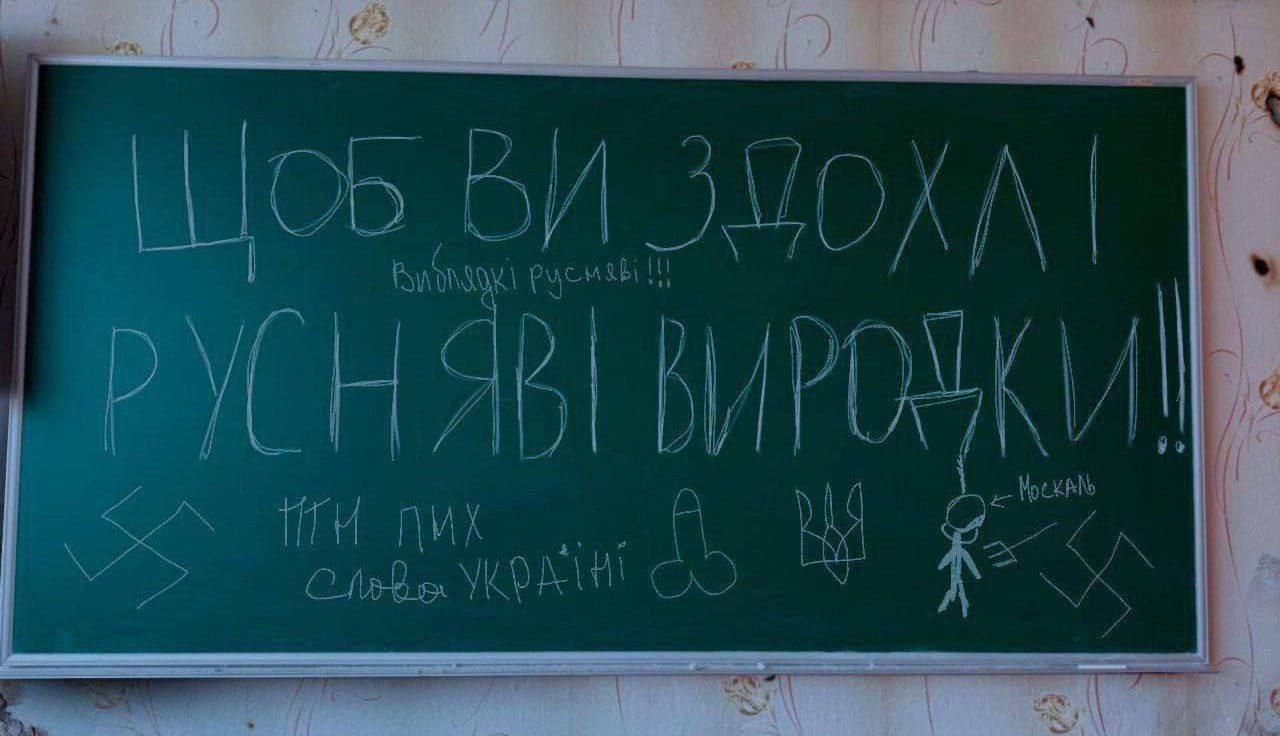 ЩОБ ВИ ЗДОХЛІ
Виблядкі русняві!!!
РУСНЯВІ ВИРОДКИ!!
ПТН ПНХ
← МОСКАЛЬ
слава УКРАЇНІ